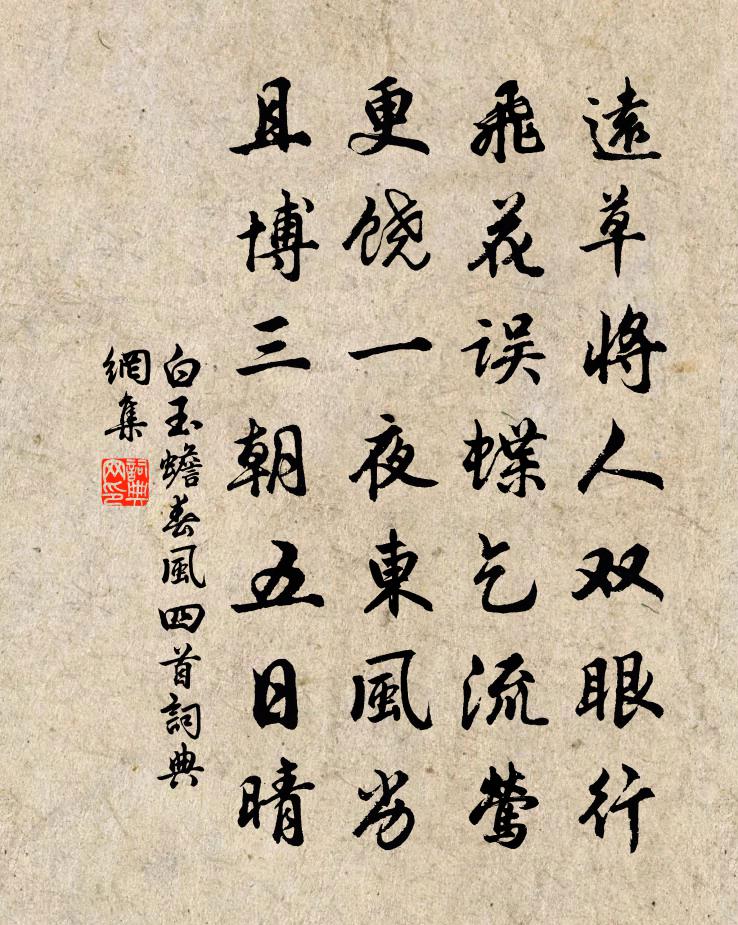 遠草將人双眼行
飛花误蝶乞流鶯
更饶一夜東風劣
且博三朝五日晴
白玉蟾春風四首詞典
網集
詞典
网印